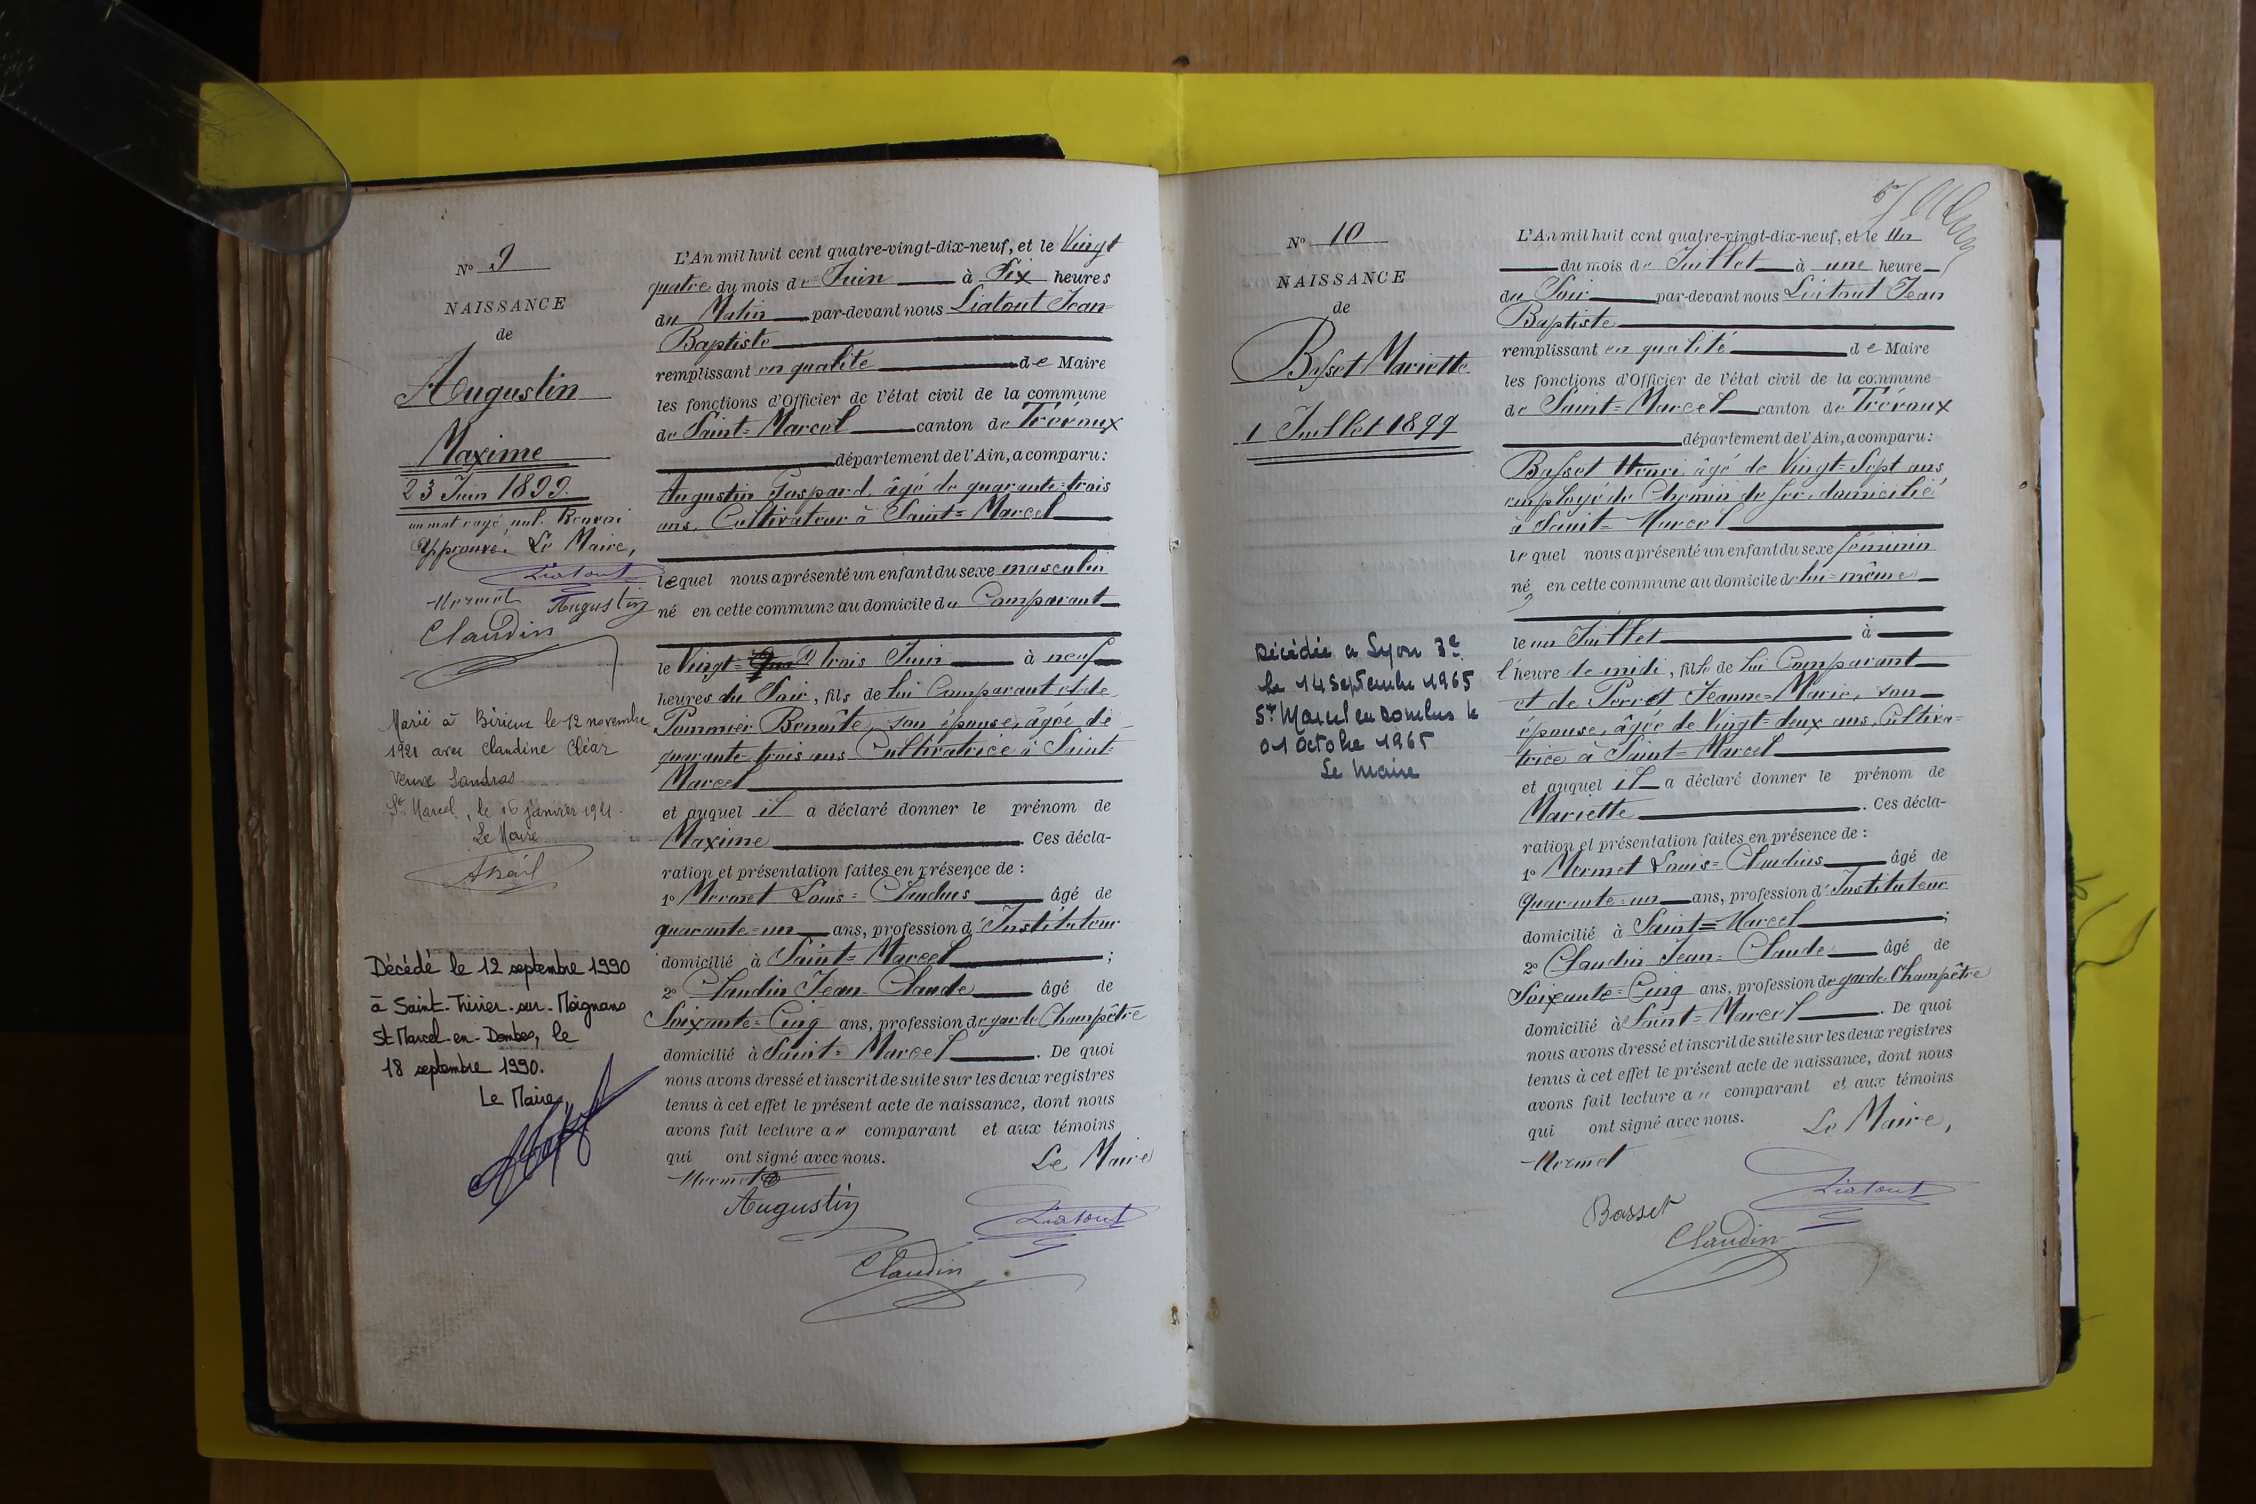 N° 9
NAISSANCE
de
Augustin
Maxime
23 Juin 1899.
un mot rayé nul. Renvoi
Approuvé. Le Maire,
Liatout
Mermet Augustin
Claudin
Marié à Birieux le 12 novembre
1921 avec Claudine
Veuve
St Marcel, le 16 janvier
Le Maire
Décédé le 12 septembre 1990
à Saint-Trivier-sur-Moignans
St Marcel-en-Dombes, le
18 septembre 1990.
Le Maire,
L'An mil huit cent quatre-vingt-dix-neuf, et le Vingt
quatre du mois de Juin à Six heures
du Matin par-devant nous Liatout Jean
Baptiste
remplissant en qualité de Maire
les fonctions d'Officier de l'état civil de la commune
de Saint=Marcel canton de Trévoux
département de l'Ain, a comparu :
Augustin Gaspard, âgé de quarante=trois
ans, Cultivateur à Saint=Marcel
lequel nous a présenté un enfant du sexe masculin
né en cette commune au domicile du Comparant
le Vingt= trois Juin à neuf
heures du Soir, fils de lui Comparant et de
Pommier Benoîte, son épouse, âgée de
quarante trois ans Cultivatrice à Saint=
Marcel
et auquel il a déclaré donner le prénom de
Maxime. Ces décla-
ration et présentation faites en présence de :
1° Mermet Louis=Claudius âgé de
quarante=un ans, profession d'Instituteur
domicilié à Saint=Marcel ;
2° Claudin Jean-Claude âgé de
Soixante=Cinq ans, profession de garde Champêtre
domicilié à Saint=Marcel. De quoi
nous avons dressé et inscrit de suite sur les deux registres
tenus à cet effet le présent acte de naissance, dont nous
avons fait lecture au comparant et aux témoins
qui ont signé avec nous.
Le Maire
Mermet
Augustin
Liatout
Claudin
N° 10
NAISSANCE
de
Basset Mariette
1 Juillet 1899
Décédée à Lyon 3e
le 14 Septembre 1965
St Marcel en Dombes le
01 Octobre 1965
Le Maire
L'An mil huit cent quatre-vingt-dix-neuf, et le Un
du mois de Juillet à une heure
du Soir par-devant nous Liatout Jean
Baptiste
remplissant en qualité de Maire
les fonctions d'Officier de l'état civil de la commune
de Saint=Marcel canton de Trévoux
département de l'Ain, a comparu :
Basset Henri, âgé de Vingt=Sept ans
employé de Chemin de fer, domicilié
à Saint=Marcel
lequel nous a présenté un enfant du sexe féminin
né en cette commune au domicile de lui=même
le un Juillet à
l'heure de midi, fille de lui Comparant
et de Perret Jeanne=Marie, son
épouse, âgée de Vingt=deux ans, Cultiva=
trice à Saint=Marcel
et auquel il a déclaré donner le prénom de
Mariette. Ces décla-
ration et présentation faites en présence de :
1° Mermet Louis=Claudius âgé de
Quarante=un ans, profession d'Instituteur
domicilié à Saint=Marcel ;
2° Claudin Jean-Claude âgé de
Soixante=Cinq ans, profession de garde Champêtre
domicilié à Saint=Marcel. De quoi
nous avons dressé et inscrit de suite sur les deux registres
tenus à cet effet le présent acte de naissance, dont nous
avons fait lecture au comparant et aux témoins
qui ont signé avec nous.
Le Maire,
Mermet
Liatout
Basset
Claudin